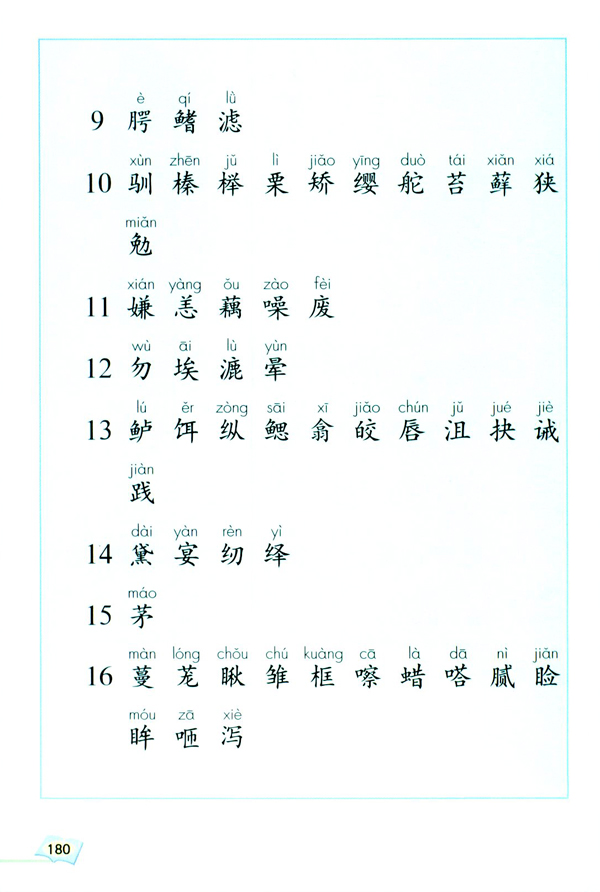 è qí lǜ
9 腭 鳍 滤
xùn zhēn jǔ lì jiǎo yīng duò tái xiǎn xiá
10 驯 榛 榉 栗 矫 缨 舵 苔 藓 狭
miǎn
勉
xián yàng ǒu zào fèi
11 嫌 恙 藕 噪 废
wù āi lù yùn
12 勿 埃 漉 晕
lú ěr zòng sāi xī jiǎo chún jǔ jué jiè
13 鲈 饵 纵 鳃 翕 皎 唇 沮 抉 诫
jiàn
践
dài yàn rèn yì
14 黛 宴 纫 绎
máo
15 茅
màn lóng chǒu chú kuàng cā là dā nì jiǎn
16 蔓 茏 瞅 雏 框 嚓 蜡 嗒 腻 睑
móu zā xiè
眸 咂 泻
180